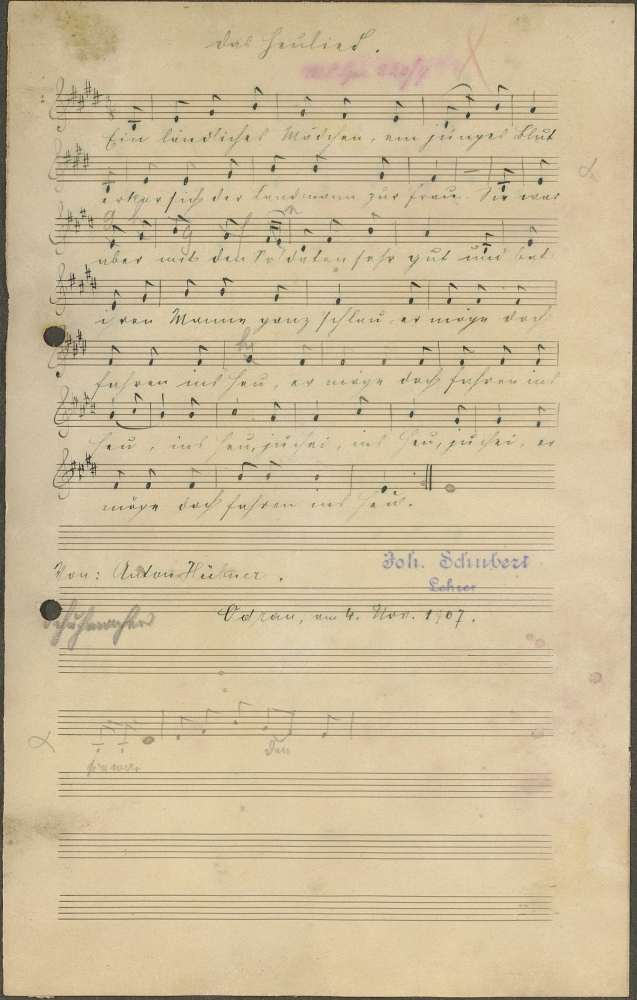 Das Heulied.
Ein ländliches Mädchen, ein junges Blut
erkor sich der Landmann zur Frau. Sie war
aber mit den Soldaten sehr gut und bat
ihren Manne ganz schlau, er möge doch
fahren ins Heu, er möge doch fahren ins
Heu, ins Heu, juchei, ins Heu, juchei, er
möge doch fahren ins Heu.
Von: Anton Hübner.
Joh. Schubert
Lehrer
Schuhmacher
Odrau, am 4. Nov. 1907.
sie war
den